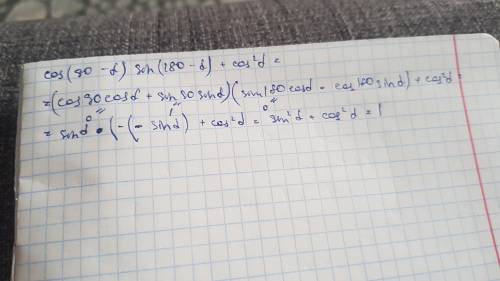 cos(90 - α) sin(180 - α) + cos²α =
= (cos 90 cosα + sin 90 sinα)(sin 180 cosα - cos 180 sinα) + cos²α =
0 1 0
= sinα • (-(- sinα) + cos²α = sin²α + cos²α = 1